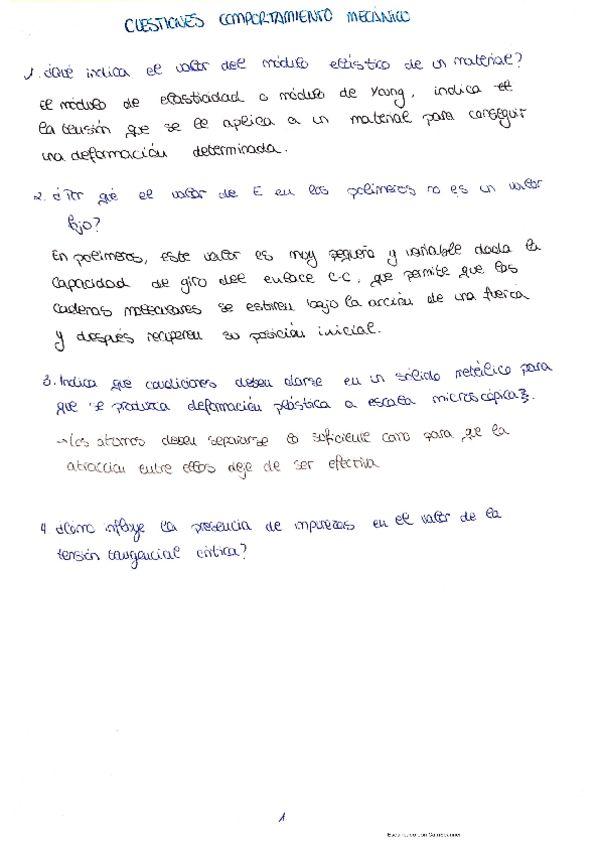 CUESTIONES COMPORTAMIENTO MECÁNICO
1. ¿Qué indica el valor del módulo elástico de un material?
El módulo de elasticidad o módulo de Young, indica el
la tensión que se le aplica a un material para conseguir
una deformación determinada.
2. ¿Por qué el valor de E en los polímeros no es un valor
fijo?
En polímeros, este valor es muy pequeño y variable dada la
capacidad de giro del enlace C-C, que permite que las
cadenas moleculares se estiren bajo la acción de una fuerza
y después recuperen su posición inicial.
3. Indica qué condiciones deben darse en un sólido metálico para
que se produzca deformación plástica a escala microscópica.
→ Los átomos deben separarse lo suficiente como para que la
atracción entre ellos deje de ser efectiva
4. ¿Cómo influye la presencia de impurezas en el valor de la
tensión tangencial crítica?
1
Escaneado con CamScanner